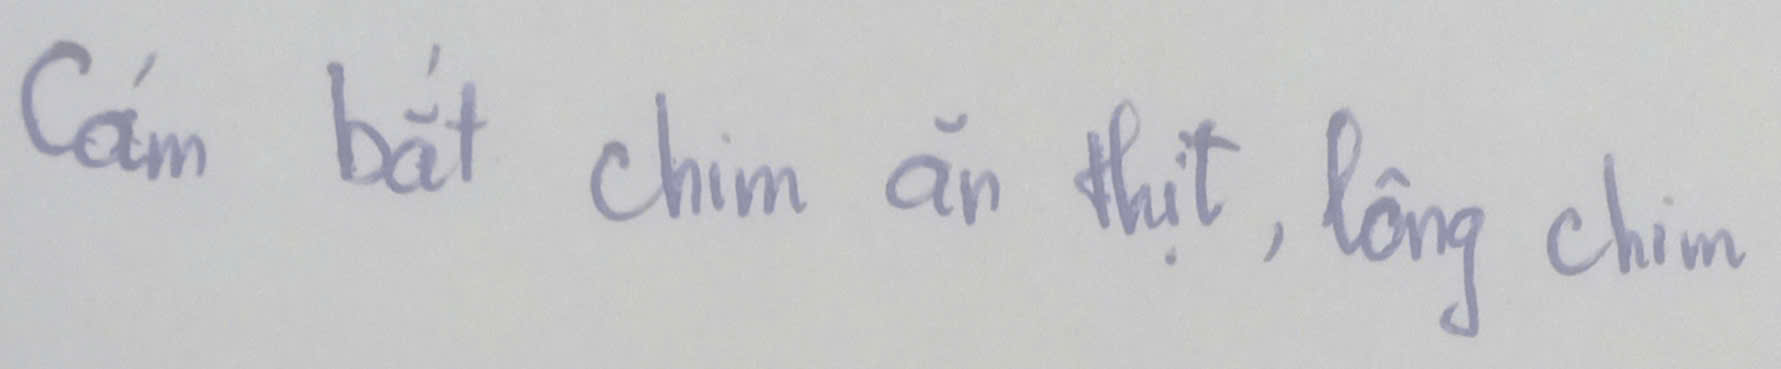 Cám bắt chim ăn thịt, lông chim